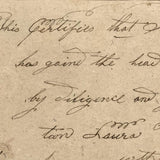 This Certifies that
has gaind the head
by diligence and
tion Laura M